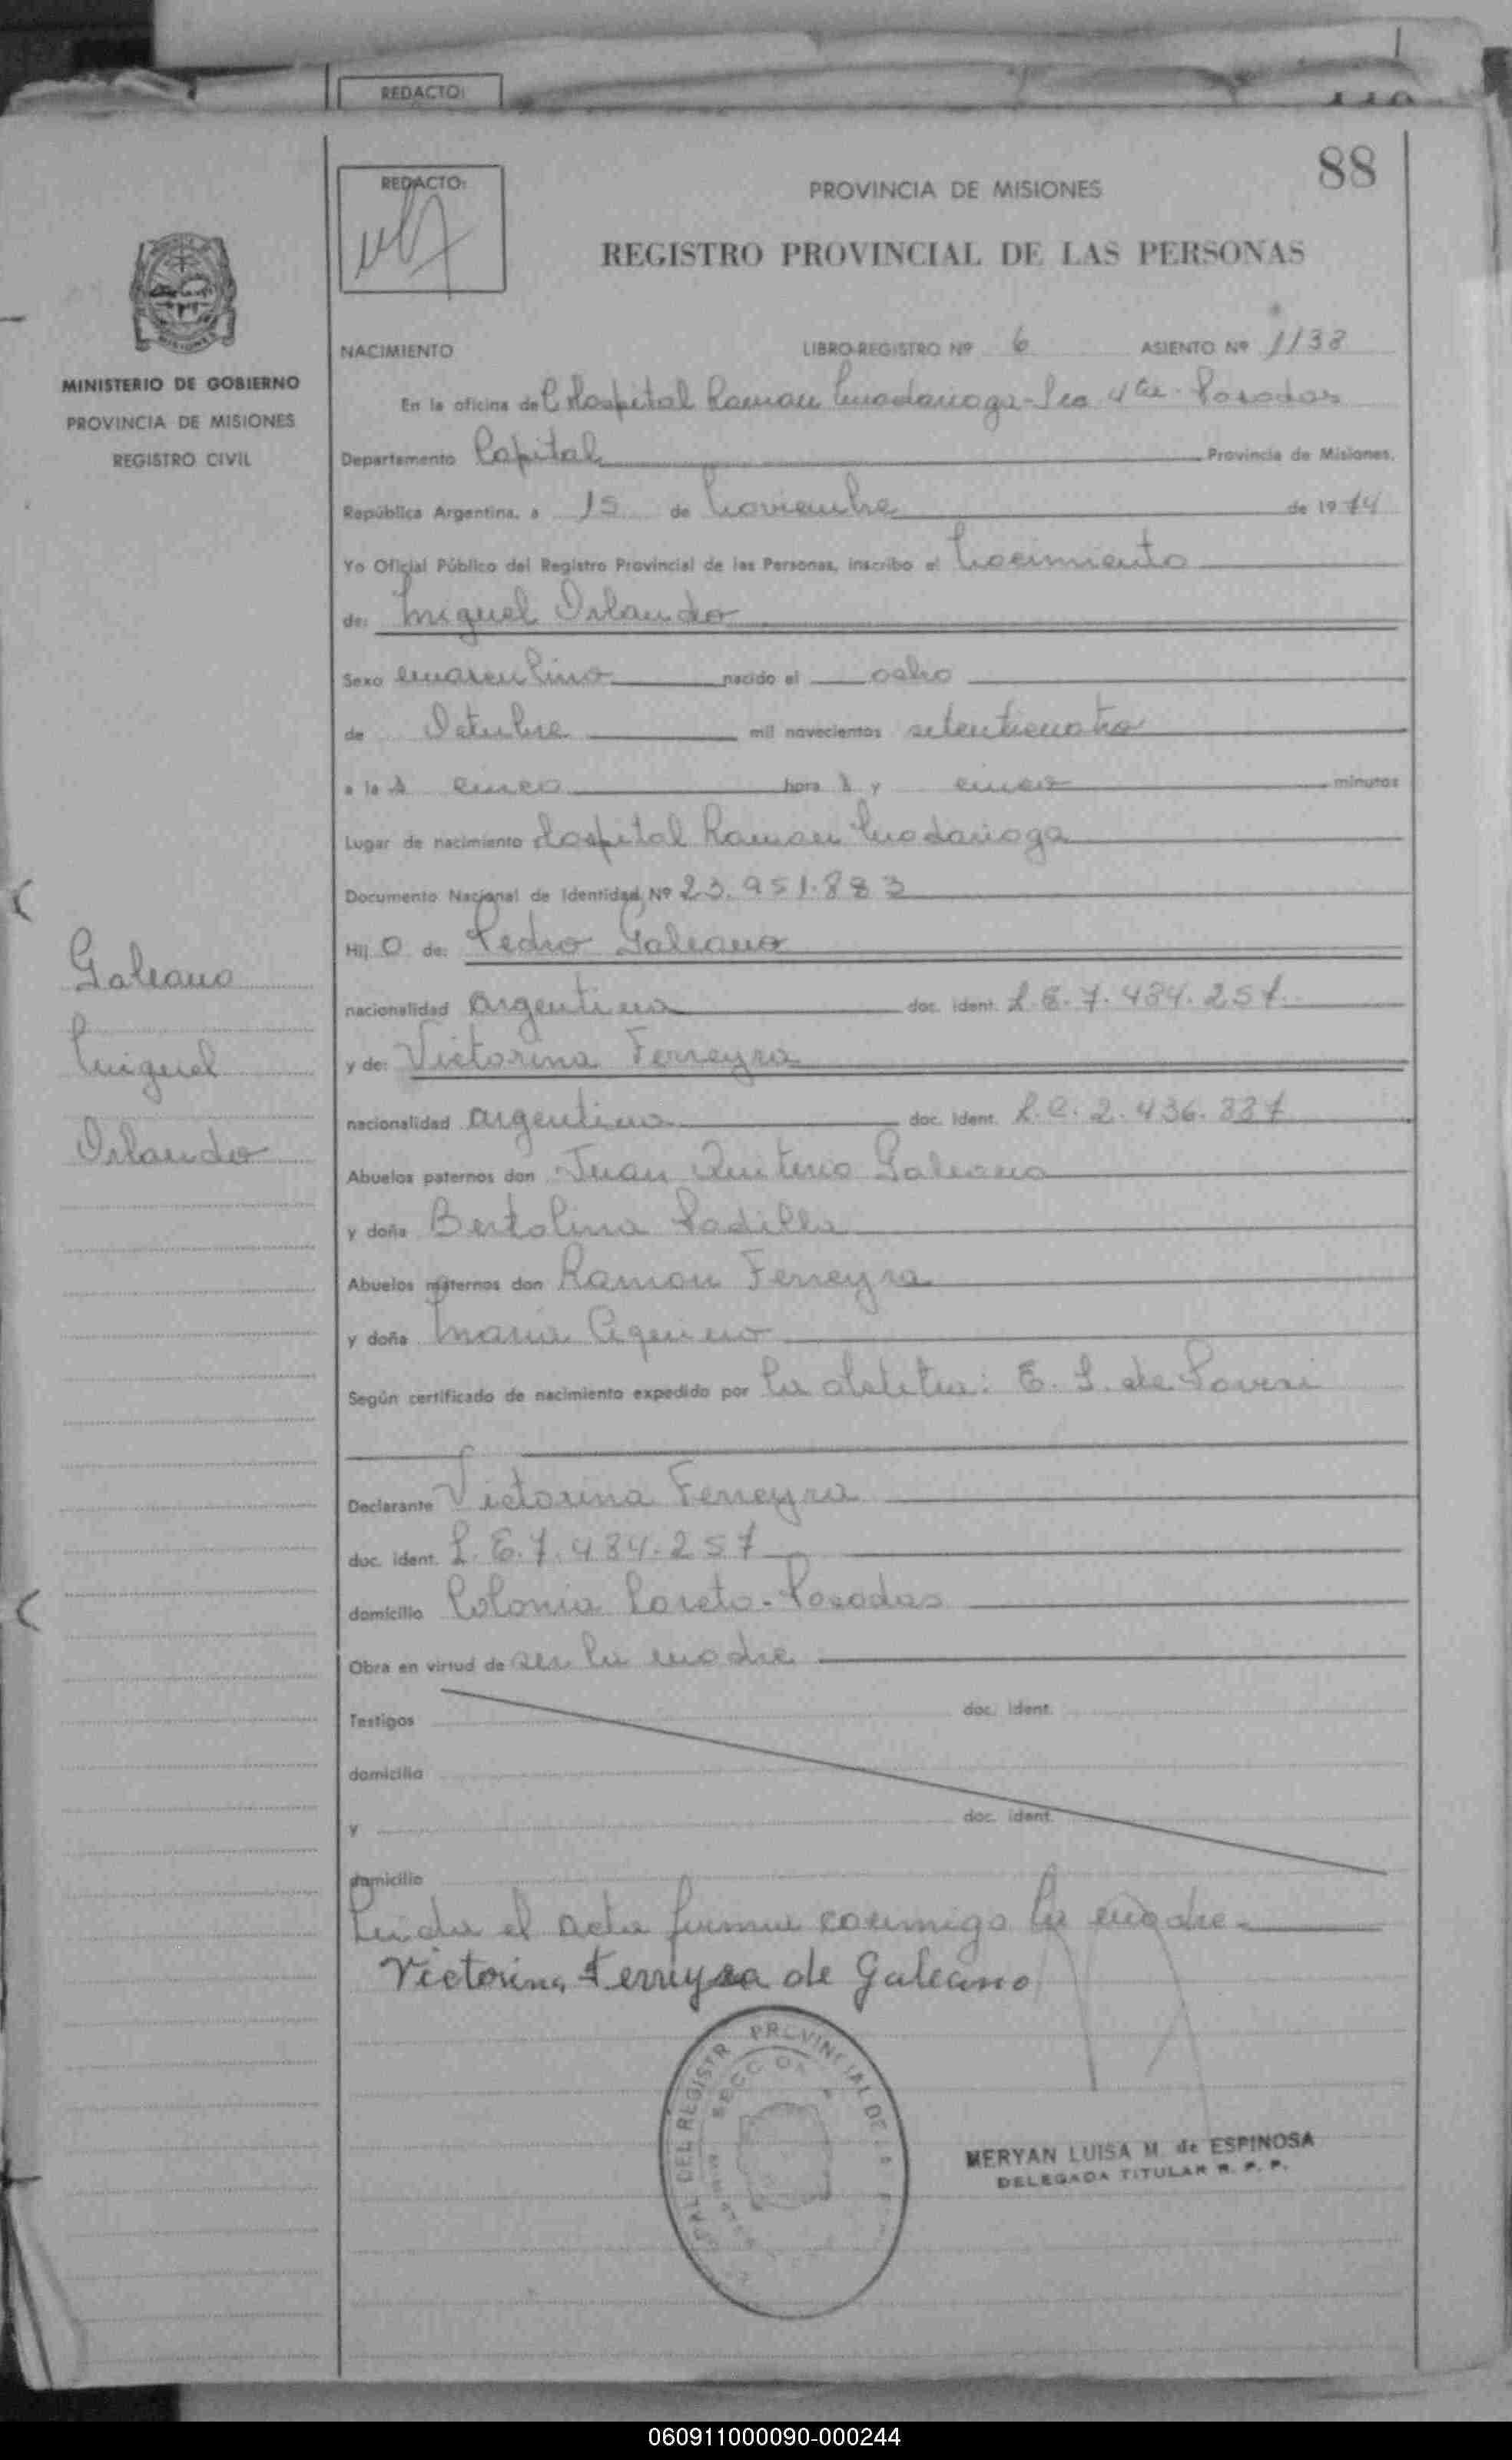 REDACTO:
88
REDACTO:
PROVINCIA DE MISIONES
REGISTRO PROVINCIAL DE LAS PERSONAS
MINISTERIO DE GOBIERNO
PROVINCIA DE MISIONES
REGISTRO CIVIL
NACIMIENTO LIBRO-REGISTRO Nº 6 ASIENTO Nº 1138
En la oficina del Hospital Ramon Madariaga - Sec 4ta - Posadas
Departamento Capital Provincia de Misiones,
República Argentina, a 15 de Noviembre de 1974
Yo Oficial Público del Registro Provincial de las Personas, inscribo el Nacimiento
de: Miguel Orlando
Sexo masculino nacido el ocho
de Octubre mil novecientos setenticuatro
a las cinco horas y cinco minutos
Lugar de nacimiento Hospital Ramon Madariaga
Documento Nacional de Identidad Nº 23.951.883
Hijo de: Pedro Galeano
nacionalidad argentina doc. ident. L.E. 7.484.257
y de: Victorina Ferreyra
nacionalidad argentina doc. ident. L.C. 2.436.337
Abuelos paternos don Juan Quiterio Galeano
y doña Bertolina Padilla
Abuelos maternos don Ramon Ferreyra
y doña Maria
Según certificado de nacimiento expedido por la E. S. de
Declarante Victorina Ferreyra
doc. ident. L.E. 7.484.257
domicilio Colonia Loreto - Posadas
Obra en virtud de ser la madre
Testigos doc. ident.
domicilio
y doc. ident.
domicilio
Leida el acta firma conmigo la madre.
Victorina Ferreyra de Galeano
Galeano
Miguel
Orlando
MERYAN LUISA M. de ESPINOSA
DELEGADA TITULAR R. P. P.
060911000090-000244